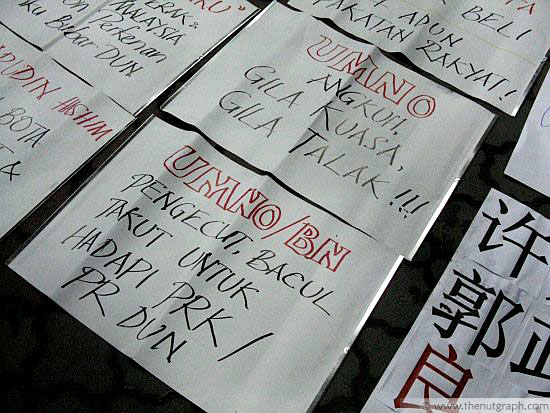 ERAK &
MALAYSIA
on Perkenan
ku Bubar DUN
UDIN HASHIM
BOTA
UMNO
ANGKUH,
GILA KUASA,
GILA TALAK !!!
BELI
ADUN
KATAN RAKYAT!
UMNO/BN
PENGECUT, BACUL
TAKUT UNTUK
HADAPI PRK /
PR DUN
许
郭
www.thenutgraph.com